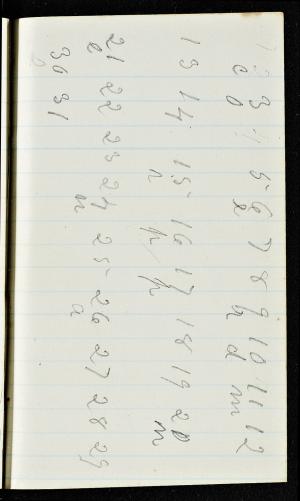 1 2 3 4 5 6 7 8 9 10 11 12
c o e h d m
13 14 15 16 17 18 19 20
n h h n
21 22 23 24 25 26 27 28 29
c n a
30 31